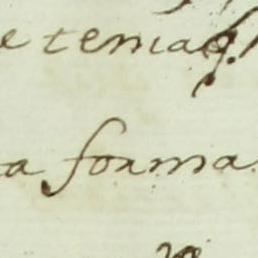 e tenia
a forma